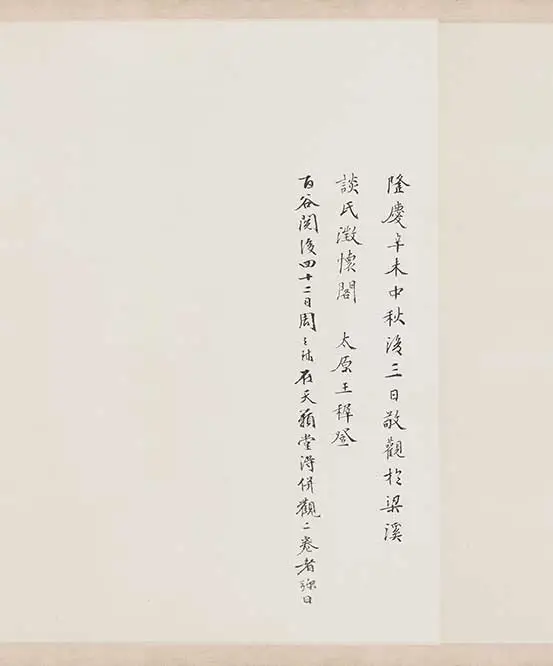 隆慶辛未中秋後三日敬觀於梁溪
談氏澂懷閣 太原王穉登
百谷閱後四十二日周之冕在天籟堂淂併觀二卷者弥日